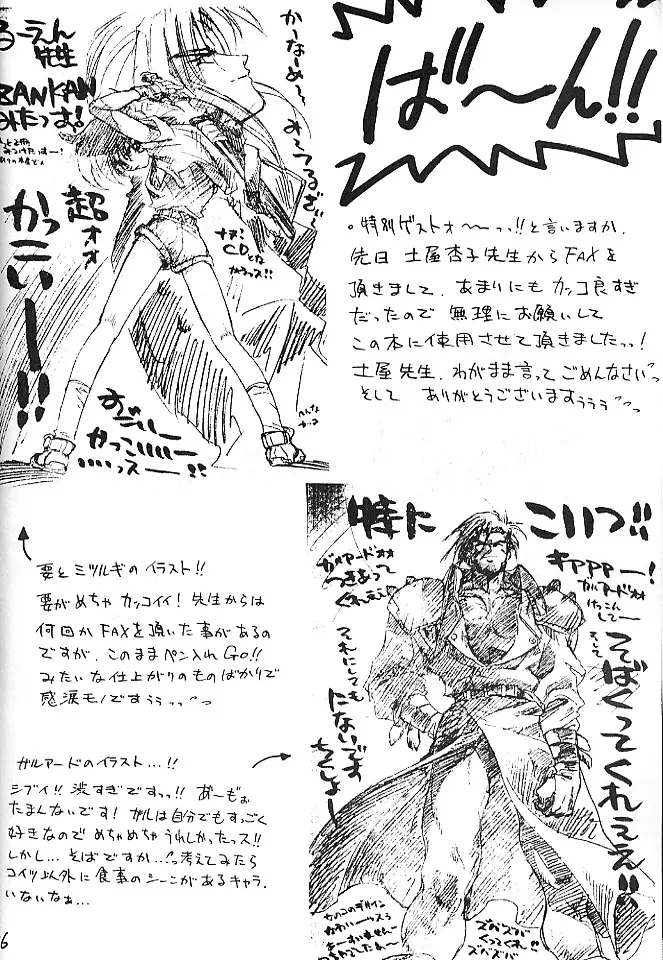 ば〜ん!!
。特別ゲストォ〜〜っ!!と言いますか、
先日 土屋杏子先生からFAXを
頂きまして、あまりにも カッコ良すぎ
だったので 無理にお願いして
この本に使用させて頂きましたっ!
土屋先生、わがまま言って ごめんなさいっ
そして ありがとうございますぅぅぅ
るーえん
先生
ZANKAN
みたっす!
かーなーめ〜
みてつるぎぃ〜
超ォォ
かっこいー!!
CDとな
すっごいー
かっこいいいー
いいっスー!!
要とミツルギのイラスト!!
要がめちゃ カッコイイ! 先生からは
何回かFAXを頂いた事があるの
ですが、このままペン入れGo!!
みたいな仕上がりのものばかりで
感涙モノですぅぅ
特に こいつ!!
ガルアードォォ
つきあって
くれぇぇ
キァァァー!
ガルアードォォ
けっこん
してー
そして
そばくってくれええ!!
それにしても
にないです
ちくしょー
ガルアードのイラスト...!!
シブイ!! 渋すぎですっっ!! あーもぉ
たまんないです! ガルは自分でもすっごく
好きなので めちゃめちゃ うれしかったっス!!
しかし... そばですか...考えてみたら
コイツ以外に食事のシーンがあるキャラ、
いないなぁ...
女のコのデザイン
かわいーッスぅ
ズバズバ
くってくれ!!
ズバズバ
6